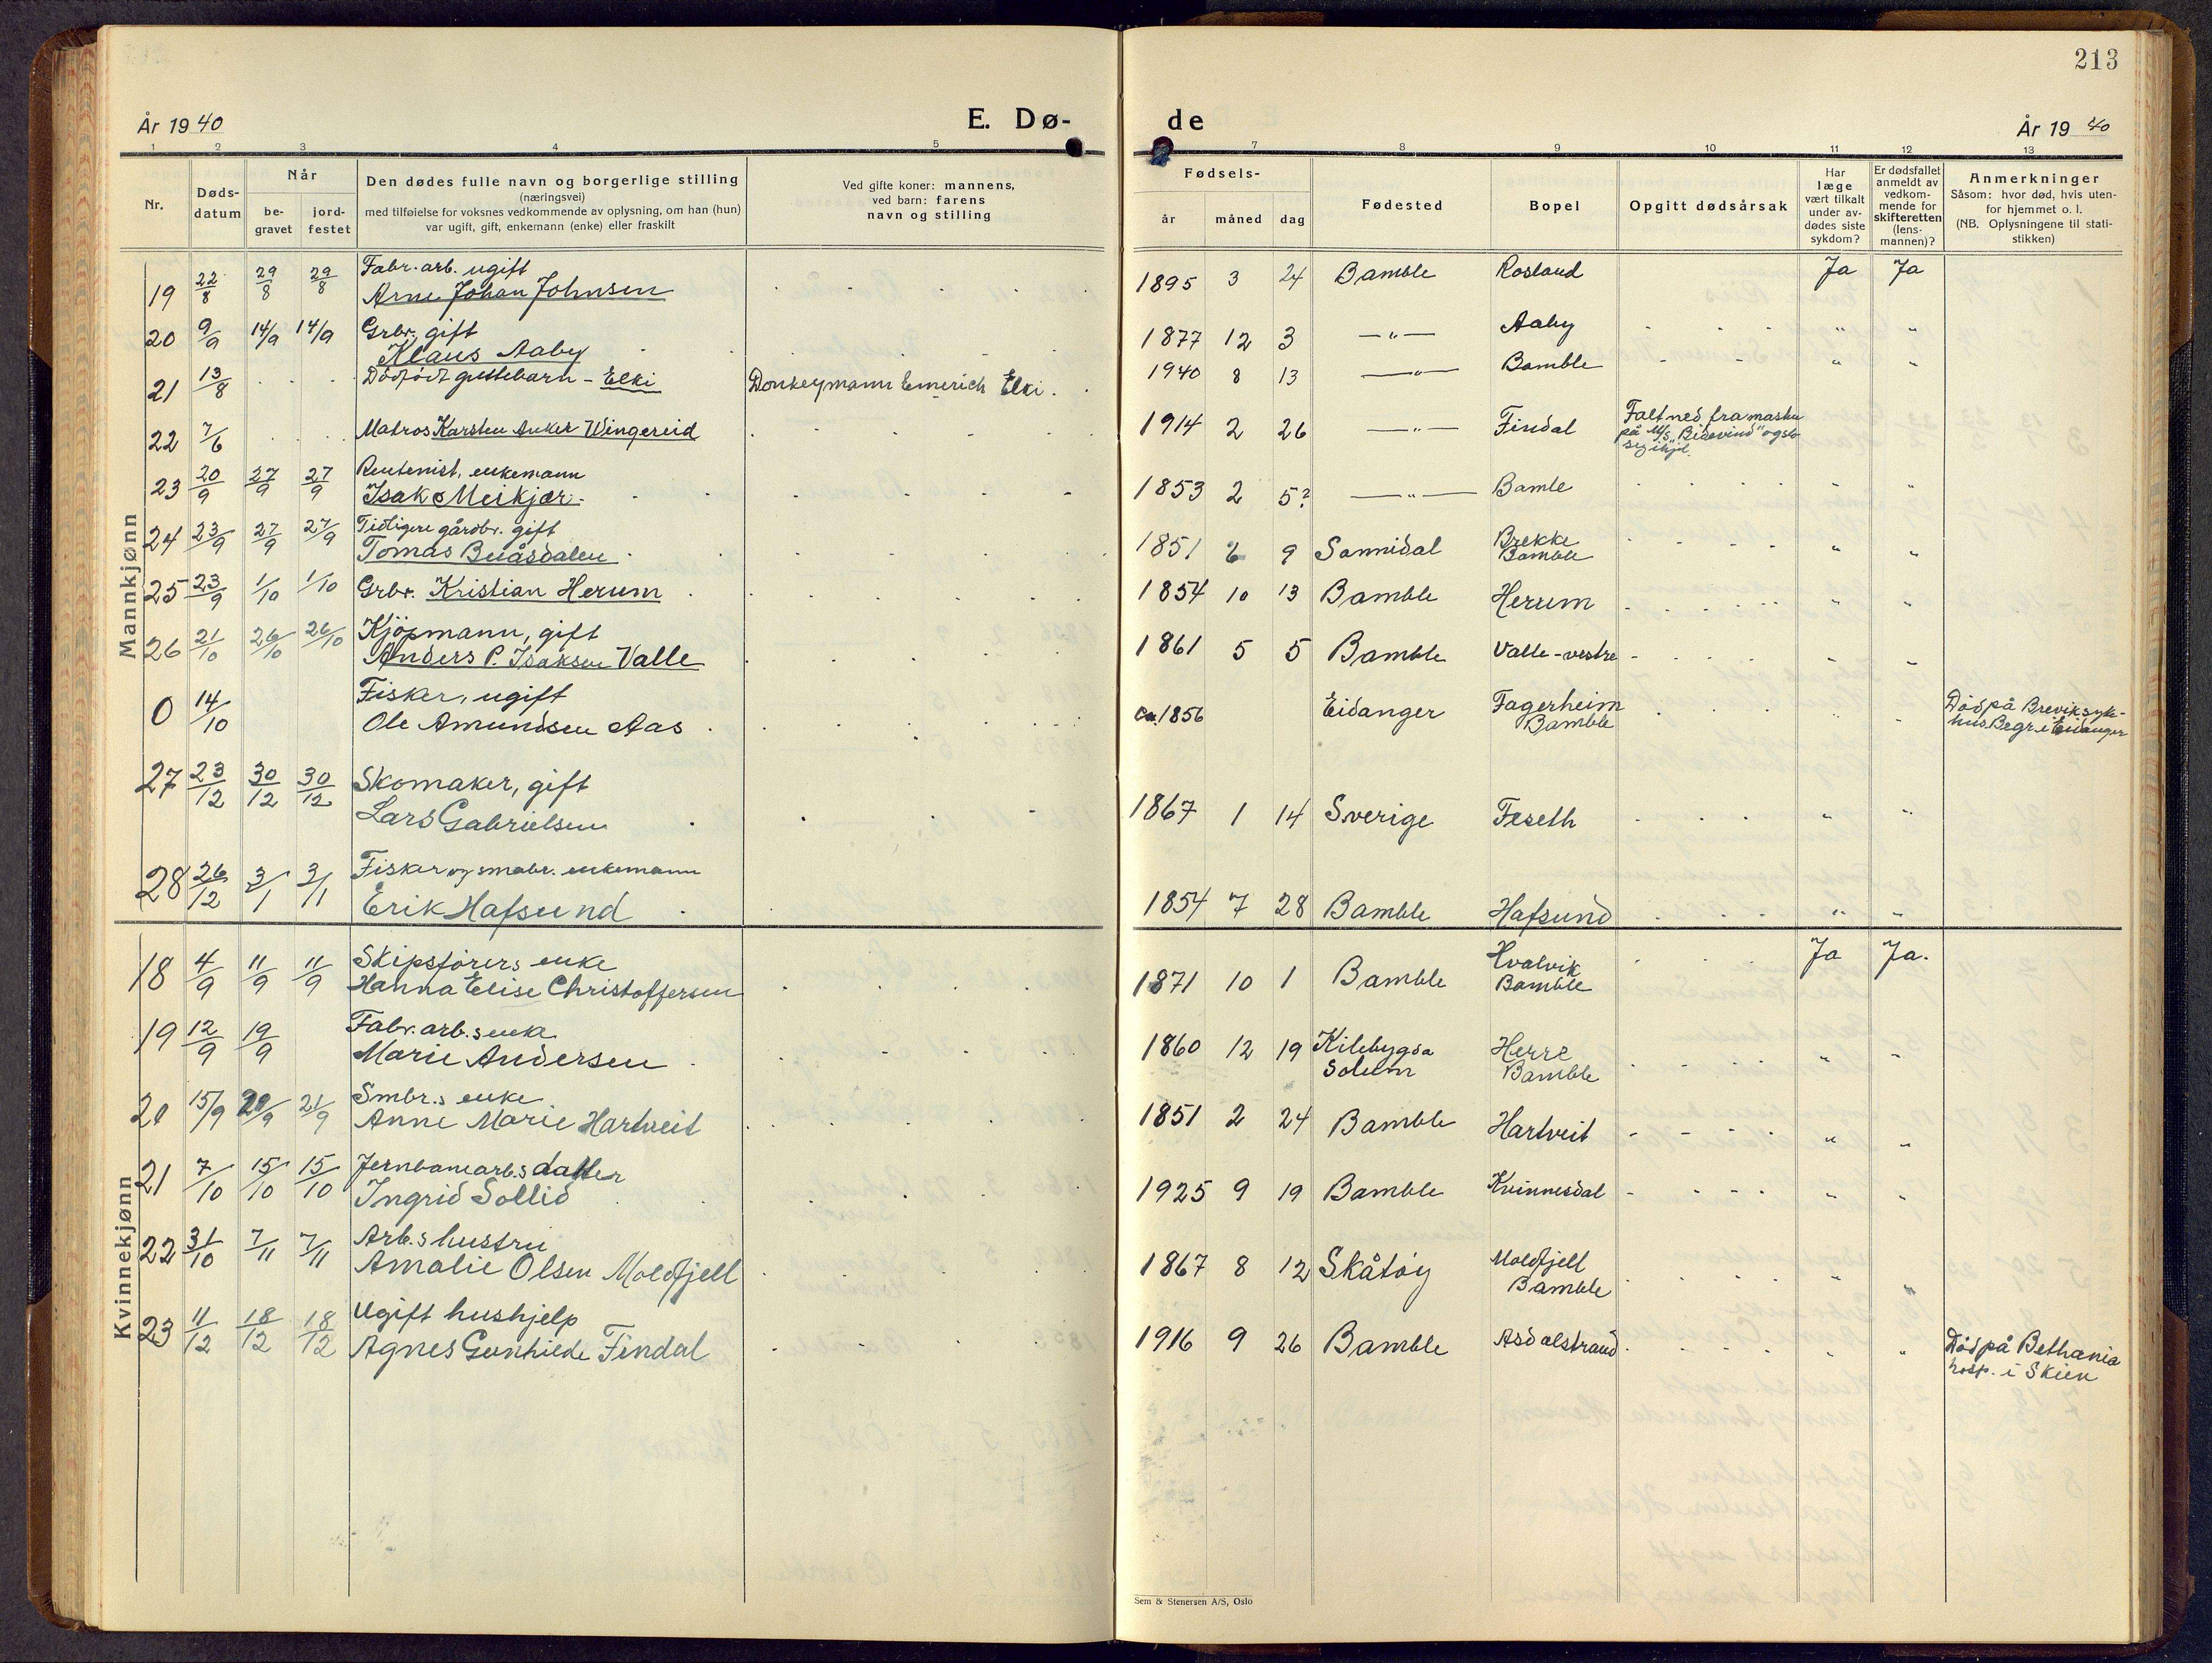 213
År 1940
E. Dø-
de
År 1940
1 2 3 4 5 7 8 9 10 11 12 13
Nr.
Døds-
datum
Når
be-
gravet
jord-
festet
Den dødes fulle navn og borgerlige stilling
(næringsvei)
med tilføielse for voksnes vedkommende av oplysning, om han (hun)
var ugift, gift, enkemann (enke) eller fraskilt
Ved gifte koner: mannens,
ved barn: farens
navn og stilling
Fødsels-
år måned dag
Fødested
Bopel
Opgitt dødsårsak
Har
læge
vært tilkalt
under av-
dødes siste
sykdom?
Er dødsfallet
anmeldt av
vedkom-
mende for
skifteretten
(lens-
mannen)?
Anmerkninger
Såsom: hvor død, hvis uten-
for hjemmet o. l.
(NB. Oplysningene til stati-
stikken)
Mannkjønn
19 22/8 29/8 29/8 Fabr. arb. ugift
Arne Johan Johnsen
1895 3 24 Bamble Rosland Ja Ja
20 9/9 14/9 14/9 Grbr, gift
Klaus Aaby
1877 12 3 —"— Aaby " "
21 13/8 Dødfødt guttebarn - Elki Donkeymann Emerich Elki.
1940 8 13 —"— Bamble " "
22 7/6 Matros Karsten Anker Wingereid
1914 2 26 —"— Findal Falt ned fra masten
på M/S "Bidevind" og slo
sig ihjel.
23 20/9 27/9 27/9 Rentenist, enkemann
Isak Meikjær
1853 2 5? —"— Bamle " "
24 23/9 27/9 27/9 Tidligere gårdbr. gift
Tomas Buåsdalen
1851 2 9 Sannidal Brekke
Bamble " "
25 23/9 1/10 1/10 Grbr. Kristian Herum
1854 10 13 Bamble Herum " "
26 21/10 26/10 26/10 Kjøpmann, gift
Anders P. Isaksen Valle
1861 5 5 Bamble Valle-vestre " "
0 14/10 Fisker, ugift
Ole Amundsen Aas
ca. 1856 Eidanger Fagerheim
Bamble " " Død på Brevik syke-
hus. Begr. i Eidanger
27 23/12 30/12 30/12 Skomaker, gift
Lars Gabrielsen
1867 1 14 Sverige Feseth " "
28 26/12 3/1 3/1 Fisker og smabr. enkemann
Erik Hafsund
1854 7 28 Bamble Hafsund " "
Kvinnekjønn
18 4/9 11/9 11/9 Skipsførers enke
Hanna Elise Christoffersen
1871 10 1 Bamble Hvalvik
Bamble Ja Ja.
19 12/9 19/9 Fabr. arb.s enke
Marie Andersen
1860 12 19 Kilebygda
Solum Herre
Bamble " "
20 15/9 20/9 21/9 Smbr.s enke
Anne Marie Hartveit
1851 2 24 Bamble Hartveit " "
21 7/10 15/10 15/10 Jernbanearb.s datter
Ingrid Sollid
1925 9 19 Bamble Kvinnesdal " "
22 31/10 7/11 7/11 Arb.s hustru
Amalie Olsen Moldfjell
1867 8 12 Skåtøy Moldfjell
Bamble " "
23 11/12 18/12 18/12 Ugift hushjelp
Agnes Gunhilde Findal
1916 9 26 Bamble Asdalstrand " " Død på Bethania
hosp. i Skien
Sem & Stenersen A/S, Oslo